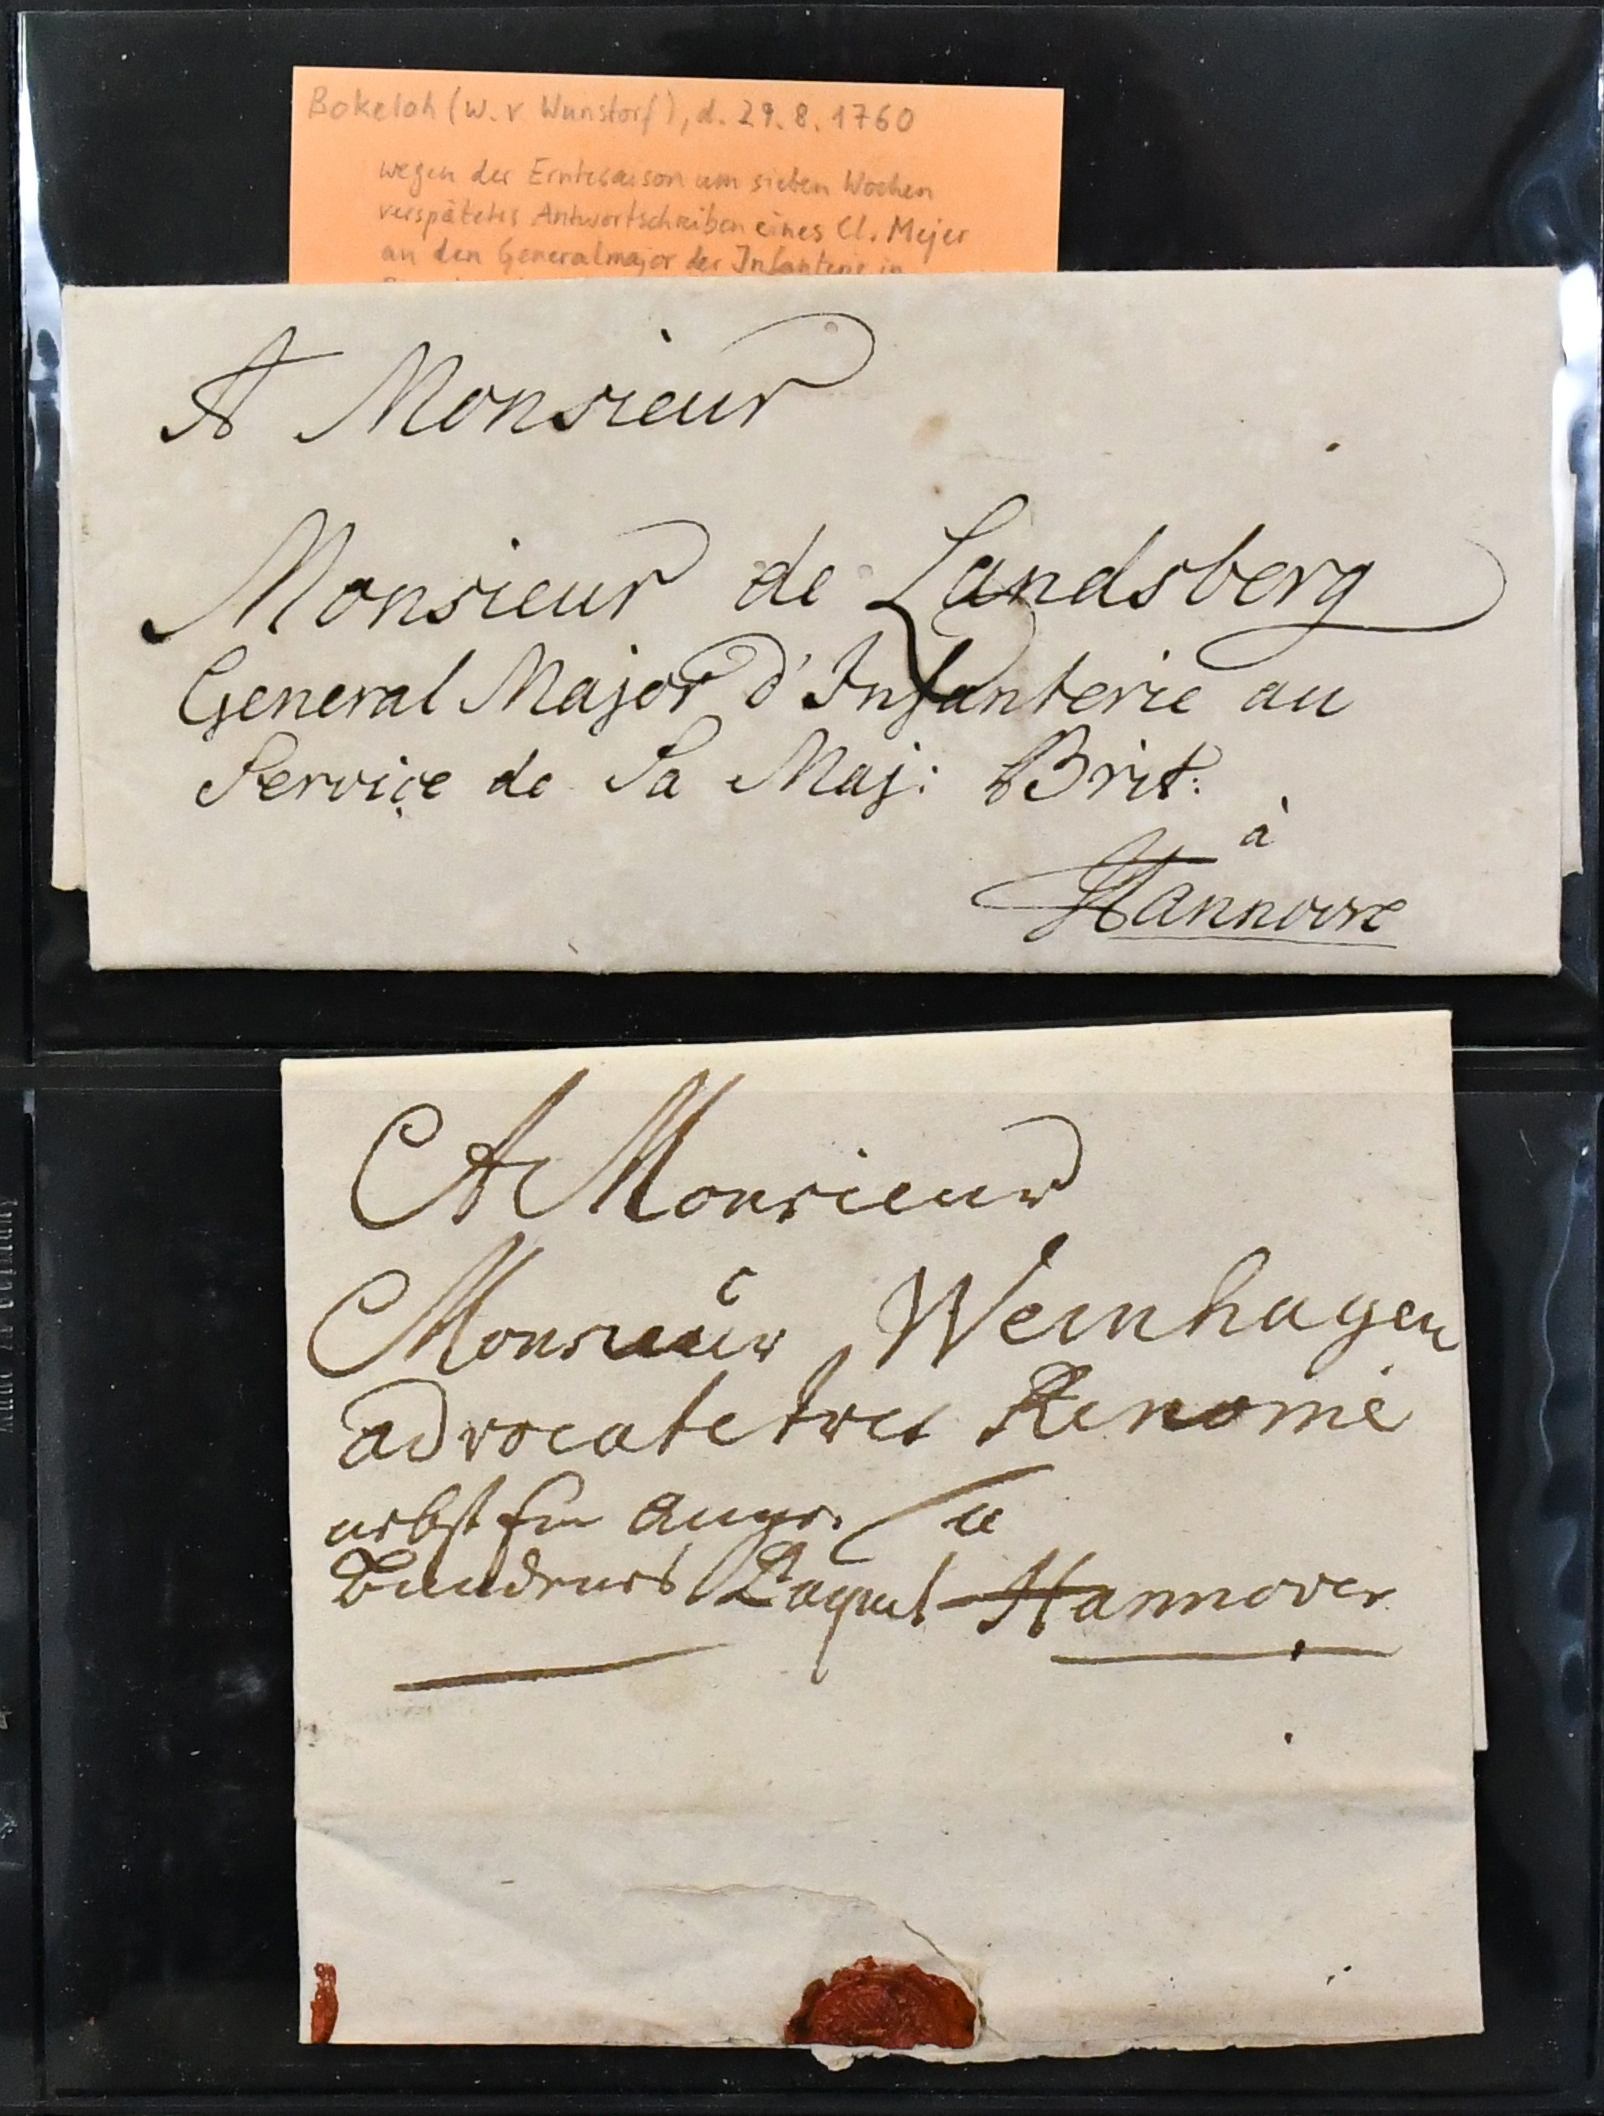 Bokeloh (w. v Wunstorf), d. 29.8.1760
wegen der Erntesaison um sieben Wochen
verspätetes Antwortschreiben eines Cl. Mejer
an den Generalmajor der Infanterie in
A Monsieur
Monsieur de Landsberg
General Major d'Infanterie au
Service de Sa Maj: Brit:
à
Hannovre
A Monsieur
Monsieur Weinhagen
advocate tres Renomé
nebst
a
Paquet Hannover